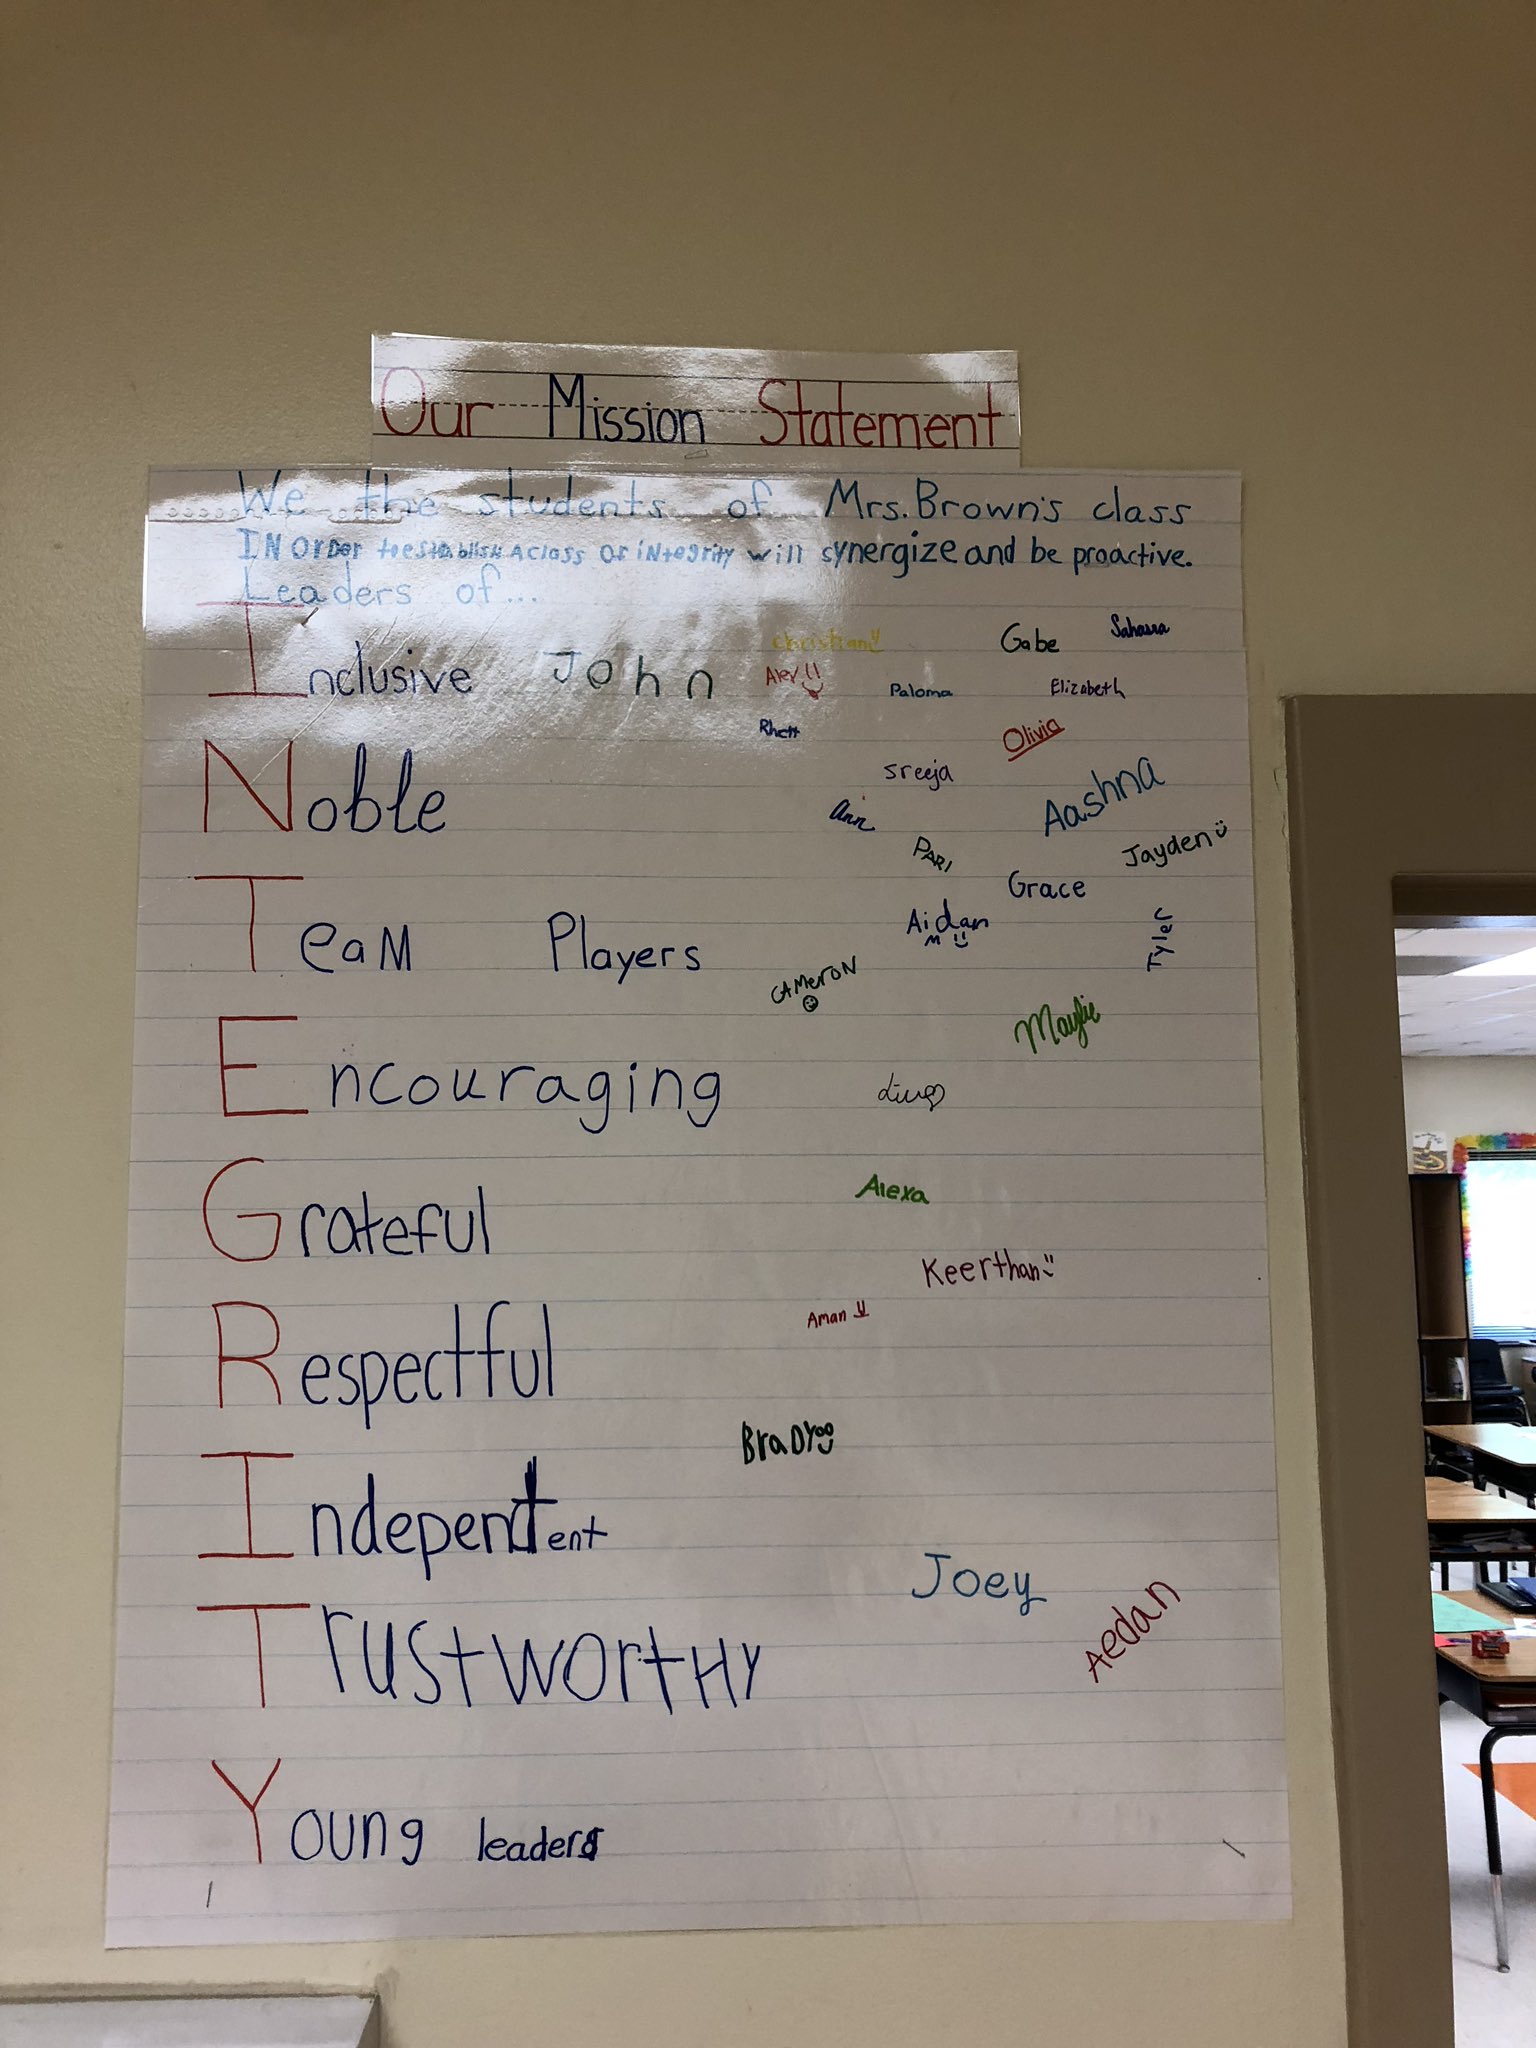 Our Mission Statement
We the students of Mrs. Brown's class
IN OrDer to establish A class Of iNtegrity will synergize and be proactive.
Leaders of...
Inclusive
John
Christian
Gabe
Sahasra
Alex
Paloma
Elizabeth
Rhett
Olivia
Noble
Sreeja
Aashna
Ann
PARI
Jayden
Grace
TeaM Players
Aidan
M
Tyler
CAMeroN
Maylie
Encouraging
Alexa
Grateful
Keerthan
Aman
Respectful
BraDY
Independent
Joey
Aedan
TrustworTHY
Young leaders